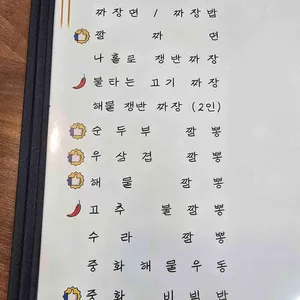 짜장면 / 짜장밥
깜짜면
나홀로 쟁반짜장
불타는 고기 짜장
해물 쟁반 짜장 (2인)
순두부 짬뽕
우삼겹 짬뽕
해물 짬뽕
고추 불짬뽕
수라 짬뽕
중화해물우동
중화 비빔밥